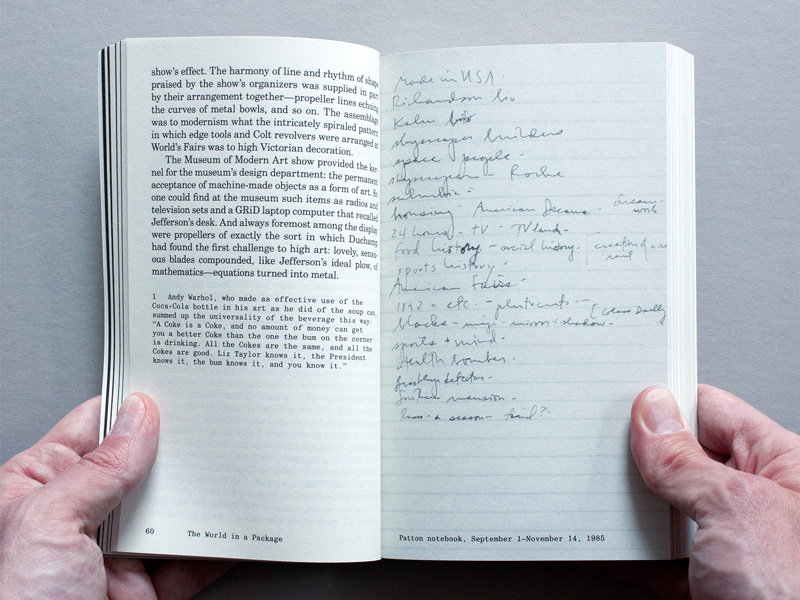 show's effect. The harmony of line and rhythm of shape
praised by the show's organizers was supplied in part
by their arrangement together—propeller lines echoing
the curves of metal bowls, and so on. The assemblage
was to modernism what the intricately spiraled pattern
in which edge tools and Colt revolvers were arranged at
World's Fairs was to high Victorian decoration.
The Museum of Modern Art show provided the ker-
nel for the museum's design department: the permanent
acceptance of machine-made objects as a form of art. So
one could find at the museum such items as radios and
television sets and a GRiD laptop computer that recalled
Jefferson's desk. And always foremost among the display
were propellers of exactly the sort in which Duchamp
had found the first challenge to high art: lovely, sensu-
ous blades compounded, like Jefferson's ideal plow, of
mathematics—equations turned into metal.
1 Andy Warhol, who made as effective use of the
Coca-Cola bottle in his art as he did of the soup can,
summed up the universality of the beverage this way:
"A Coke is a Coke, and no amount of money can get
you a better Coke than the one the bum on the corner
is drinking. All the Cokes are the same, and all the
Cokes are good. Liz Taylor knows it, the President
knows it, the bum knows it, and you know it."
60 The World in a Package
Made in USA
Richardson bio
Kahn
skyscraper builders
space people -
skyscraper - Roche
suburbia -
housing - American Dream - Dream
24 hours - TV - TV land -
food history - social history -
sports history -
American Fairs -
1892 - etc. -
blacks - - mirror + shadow -
sports + mind -
stealth bomber -
mansion -
- a season -
Patton notebook, September 1–November 14, 1985